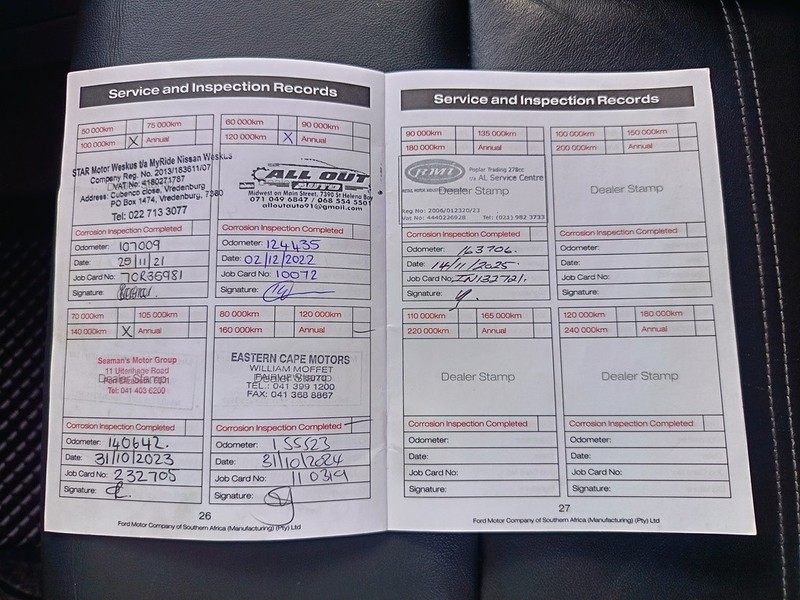 Service and Inspection Records
50 000km 75 000km
100 000km X Annual
STAR Motor Weskus t/a MyRide Nissan Weskus
Company Reg. No. 2013/183611/07
VAT No: 4180271787
Address: Cubenco close, Vredenburg
PO Box 1474, Vredenburg, 7380
Tel: 022 713 3077
Corrosion Inspection Completed
Odometer: 107009
Date: 25/11/21
Job Card No: 70R35981
Signature:
60 000km 90 000km
120 000km X Annual
ALL OUT
AUTO
Midwest on Main Street, 7390 St Helena Bay
071 049 6847 / 068 554 5501
alloutauto91@gmail.com
Corrosion Inspection Completed
Odometer: 124435
Date: 02/12/2022
Job Card No: 10072
Signature:
70 000km 105 000km
140 000km X Annual
Seaman's Motor Group
11 Uitenhage Road
6001
Tel: 041 403 6200
Dealer Stamp
Corrosion Inspection Completed
Odometer: 140642.
Date: 31/10/2023
Job Card No: 232705
Signature:
80 000km 120 000km
160 000km Annual
EASTERN CAPE MOTORS
WILLIAM MOFFET
FAIRVIEW 6070
TEL.: 041 399 1200
FAX: 041 368 8867
Dealer Stamp
Corrosion Inspection Completed
Odometer: 155523
Date: 31/10/2024
Job Card No: 110319
Signature:
26
Ford Motor Company of Southern Africa (Manufacturing) (Pty) Ltd
Service and Inspection Records
90 000km 135 000km
180 000km Annual
RMI
Poplar Trading 278cc
t/a AL Service Centre
Dealer Stamp
Reg No: 2006/012320/23
Vat No: 4440226928 Tel: (021) 982 3733
Corrosion Inspection Completed
Odometer: 163706.
Date: 14/11/2025.
Job Card No: IN132721.
Signature:
100 000km 150 000km
200 000km Annual
Dealer Stamp
Corrosion Inspection Completed
Odometer:
Date:
Job Card No:
Signature:
110 000km 165 000km
220 000km Annual
Dealer Stamp
Corrosion Inspection Completed
Odometer:
Date:
Job Card No:
Signature:
120 000km 180 000km
240 000km Annual
Dealer Stamp
Corrosion Inspection Completed
Odometer:
Date:
Job Card No:
Signature:
27
Ford Motor Company of Southern Africa (Manufacturing) (Pty) Ltd